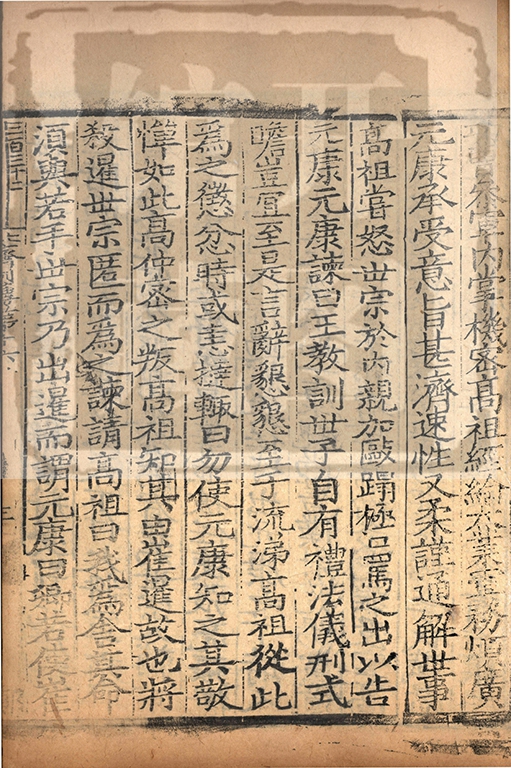 內掌機密高祖經綸大業軍務煩廣
元康承受意旨甚濟速性又柔謹通解世事
高祖嘗怒世宗於內親加毆蹋極口罵之出以告
元康元康諫曰王教訓世子自有禮法儀刑式
瞻豈宜至是言辭懇懇至于流涕高祖從此
為之懲忿時或恚撻輒曰勿使元康知之其敬
憚如此高仲密之叛高祖知其由崔暹故也將
殺暹世宗匿而為之諫請高祖曰我為舍其命
須與苦手世宗乃出暹而謂元康曰卿若使崔
三百三十二
三